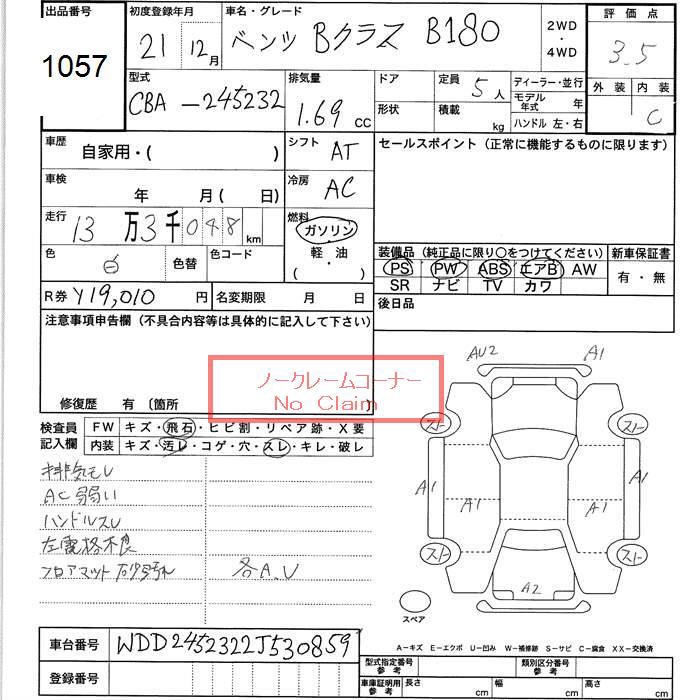 出品番号
1057
初度登録年月
21 12月
車名・グレード
ベンツ Bクラス B180
2WD
・
4WD
評価点
3.5
外装 内装
C
型式
CBA-245232
排気量
1.69 cc
ドア
形状
定員 5人
積載 kg
ディーラー・並行
モデル年式 年
ハンドル 左・右
車歴
自家用・( )
シフト AT
セールスポイント (正常に機能するものに限ります)
車検
年 月( 日)
冷房 AC
走行
13万3千048km
燃料
ガソリン
軽・油
( ・ )
色 白 色替
色コード
装備品 (純正品に限り○をつけてください)
新車保証書
PS PW ABS エアB AW
SR ナビ TV カワ
有・無
R券 ¥19,010 円
名変期限 月 日
後日品
注意事項申告欄 (不具合内容等は具体的に記入して下さい)
ノークレームコーナー
No Claim
修復歴 有 〔箇所
検査員
記入欄
FW キズ・飛石・ヒビ割・リペア跡・X要
内装 キズ・汚レ・コゲ・穴・スレ・キレ・破レ
排気モレ
AC弱い
ハンドルスレ
左電格不良
フロアマット 砂汚れ
各A.U
AU2 A1
スト スト
A1 A1 A1 A1
スト スト
A2
スペア
A－キズ E－エクボ U－凹み W－補修跡 S－サビ C－腐食 XX－交換済
車台番号 WDD2452322J530859
登録番号
型式指定番号
参考
類別区分番号
参考
車庫証明用
参考
長さ cm 幅 cm 高さ cm